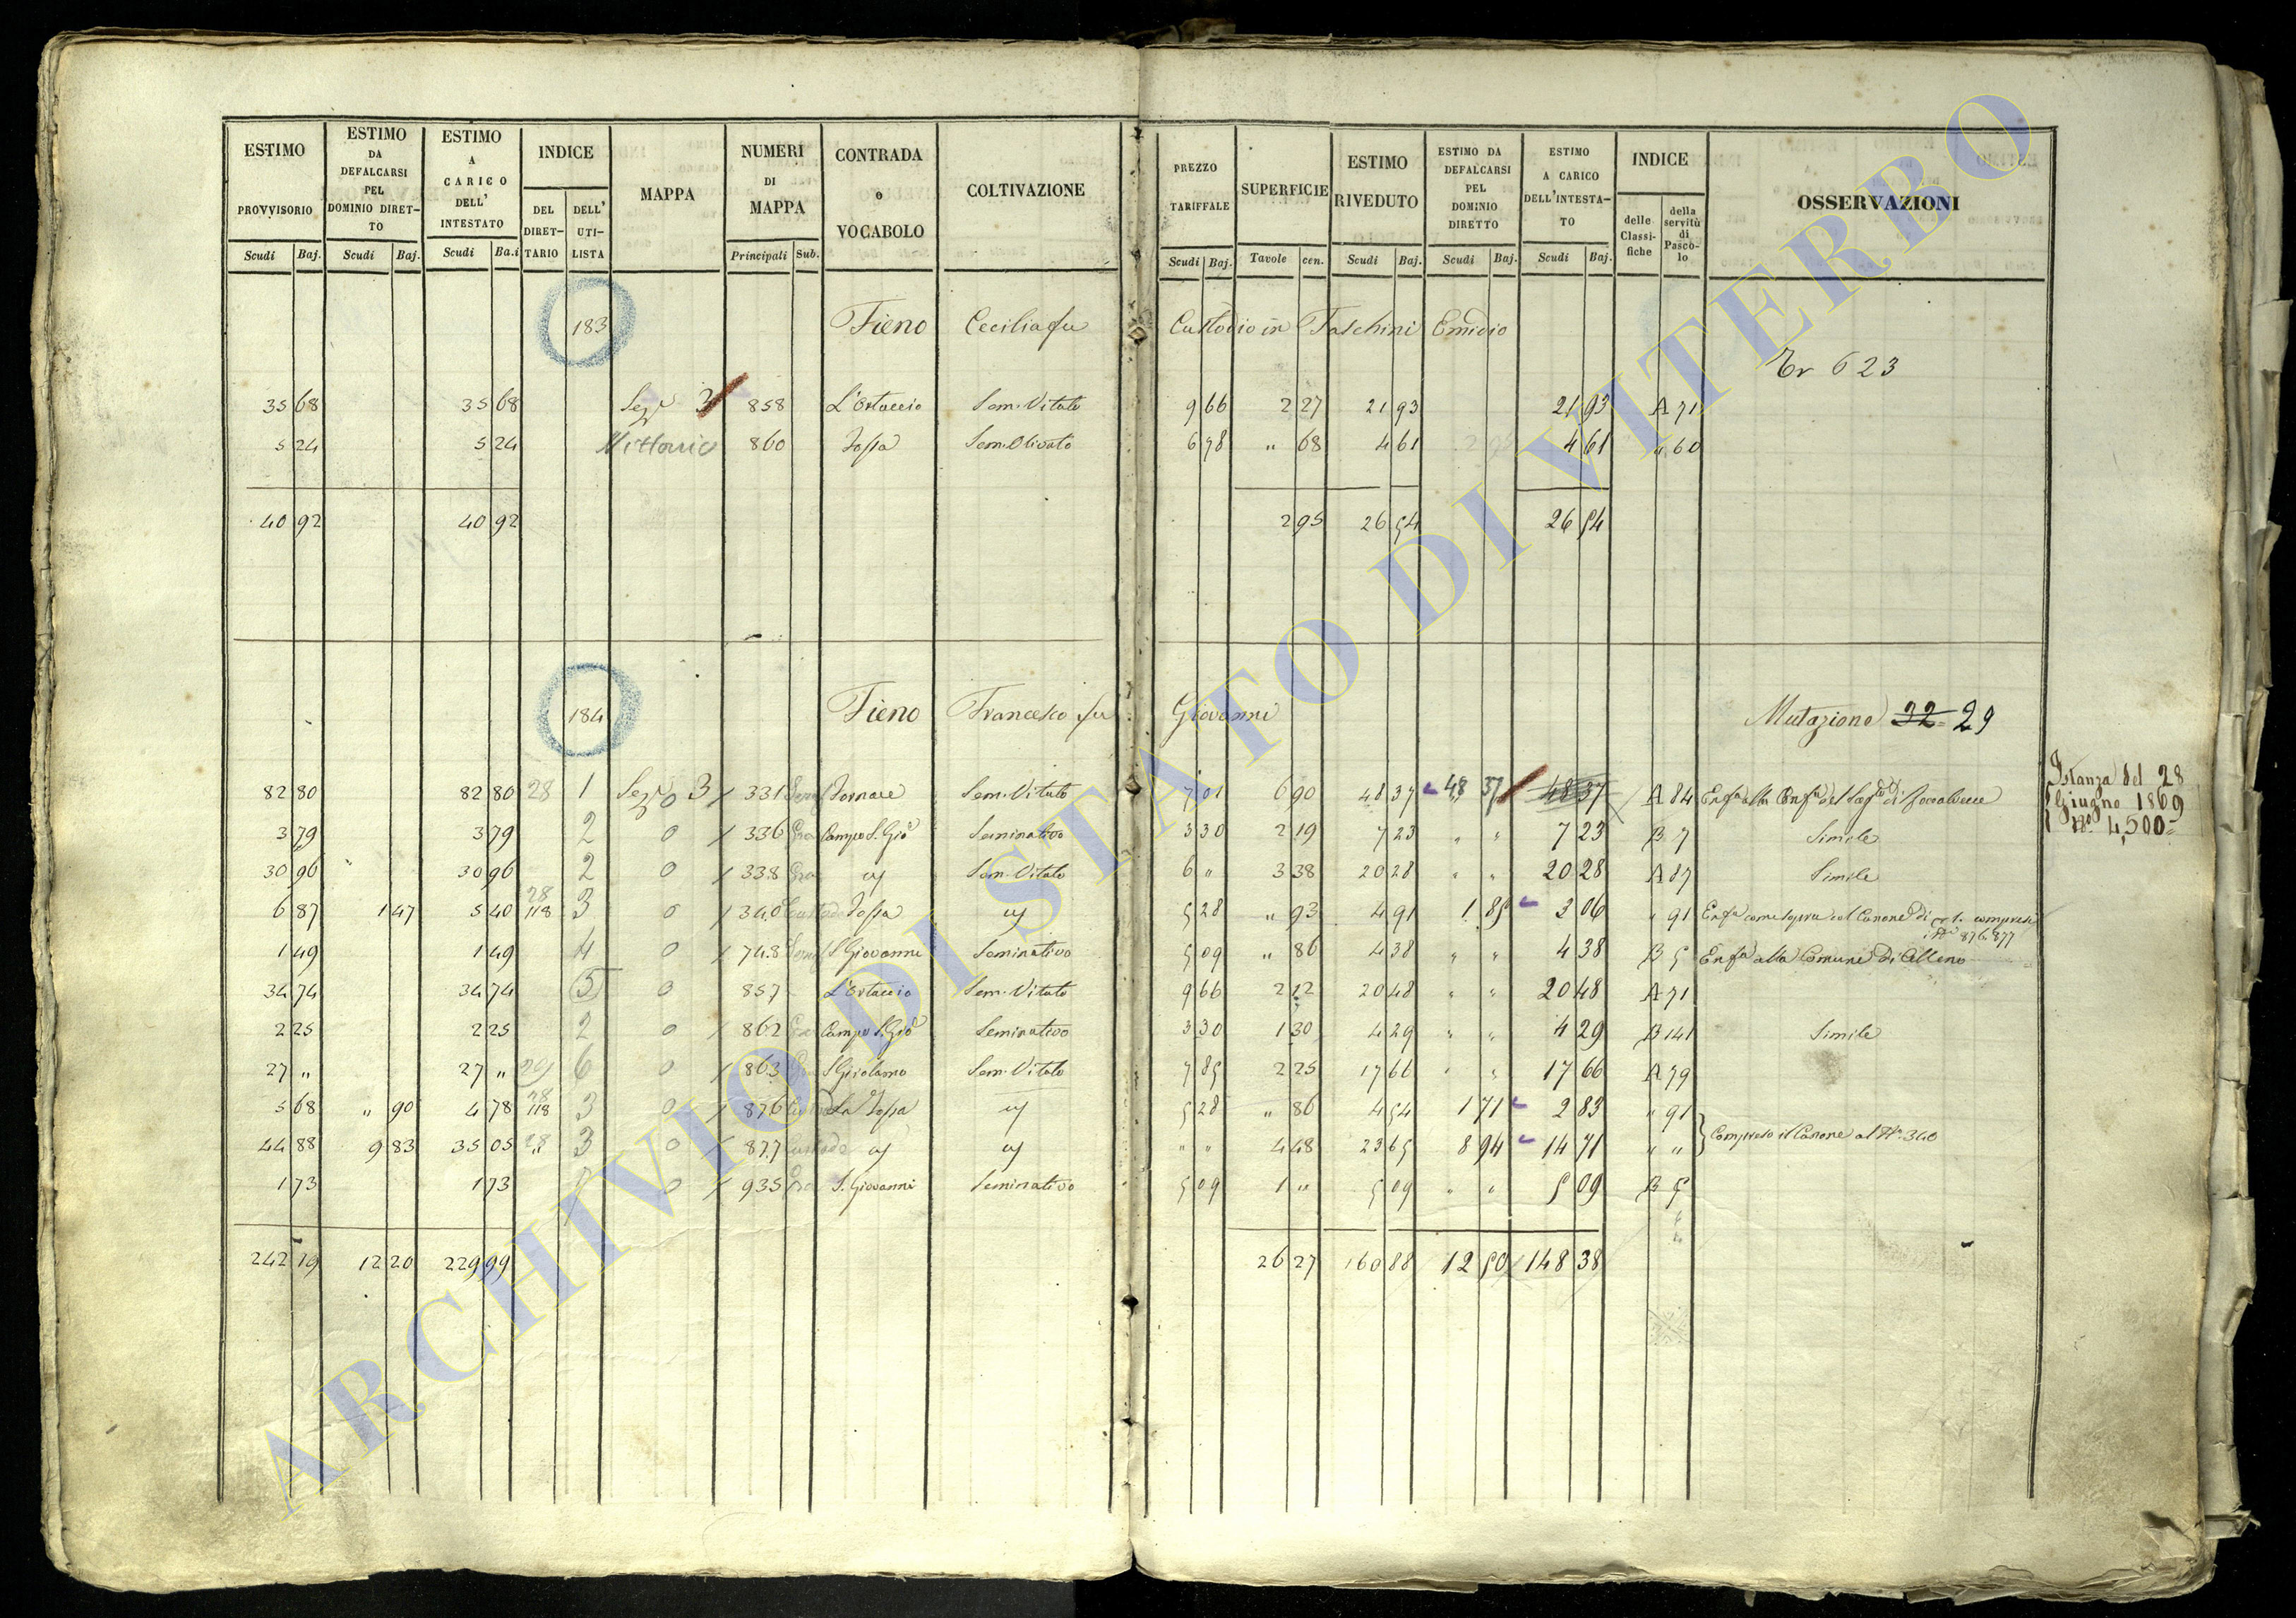 ESTIMO PROVVISORIO Scudi Baj. ESTIMO DA DEFALCARSI PEL DOMINIO DIRETTO Scudi Baj. ESTIMO A CARICO DELL' INTESTATO Scudi Ba.i INDICE DEL DIRETTARIO DELL' UTILISTA MAPPA NUMERI DI MAPPA Principali Sub. CONTRADA o VOCABOLO COLTIVAZIONE PREZZO TARIFFALE Scudi Baj. SUPERFICIE Tavole cen. ESTIMO RIVEDUTO Scudi Baj. ESTIMO DA DEFALCARSI PEL DOMINIO DIRETTO Scudi Baj. ESTIMO A CARICO DELL'INTESTATO Scudi Baj. INDICE delle Classifiche della servitù di Pascolo OSSERVAZIONI
183 Fieno Cecilia fu Custodio in Taschini Emidio
Tr 623
35 68 35 68 Sez.e 3 858 L'Ortaccio Sem. Vitato 9 66 2 27 21 93 21 93 A 71
5 24 5 24 Vittorio 860 Fossa Sem. Olivato 6 78 " 68 4 61 4 61 " 60
40 92 40 92 2 95 26 54 26 54
184 Fieno Francesco fu Giovanni Mutazione 32 = 29
82 80 82 80 28 1 Sez.e 3 331 Fornace Sem. Vitato 7 01 6 90 48 37 48 37 48 37 A 84
Istanza del 28
Giugno 1869
N° 4,500=
3 79 3 79 2 0 336 Campo S. Gio Seminativo 3 30 2 19 7 23 " " 7 23 B 7 Simile
30 96 30 96 2 0 338 Sem. Vitato 6 " 3 38 20 28 " " 20 28 A 87 Simile
6 87 1 47 5 40 28 118 3 0 340 Fossa 5 28 " 93 4 91 1 85 3 06 " 91 Enf.a come sopra col Canone di compresi
i N.i 876. 877
1 49 1 49 4 0 748 S. Giovanni Seminativo 5 09 " 86 4 38 " " 4 38 B 5 Enf.a alla Comune di Alleno
34 74 34 74 5 0 857 L'Ortaccio Sem. Vitato 9 66 2 12 20 48 " " 20 48 A 71
2 25 2 25 2 0 862 Campo S. Gio Seminativo 3 30 1 30 4 29 " " 4 29 B 141 Simile
27 " 27 " 6 0 863 S Girolamo Sem. Vitato 7 85 2 25 17 66 " " 17 66 A 79
5 68 " 90 4 78 28 118 3 0 876 La Fossa 5 28 " 86 4 54 1 71 2 83 " 91
44 88 9 83 35 05 28 " 3 0 877 " " 4 48 23 65 8 94 14 71 " " Compreso il Canone al N° 340
1 73 1 73 0 935 S. Giovanni Seminativo 5 09 1 " 5 09 " " 5 09 B 5
242 19 12 20 229 99 26 27 160 88 12 50 148 38
ARCHIVIO DI STATO DI VITERBO